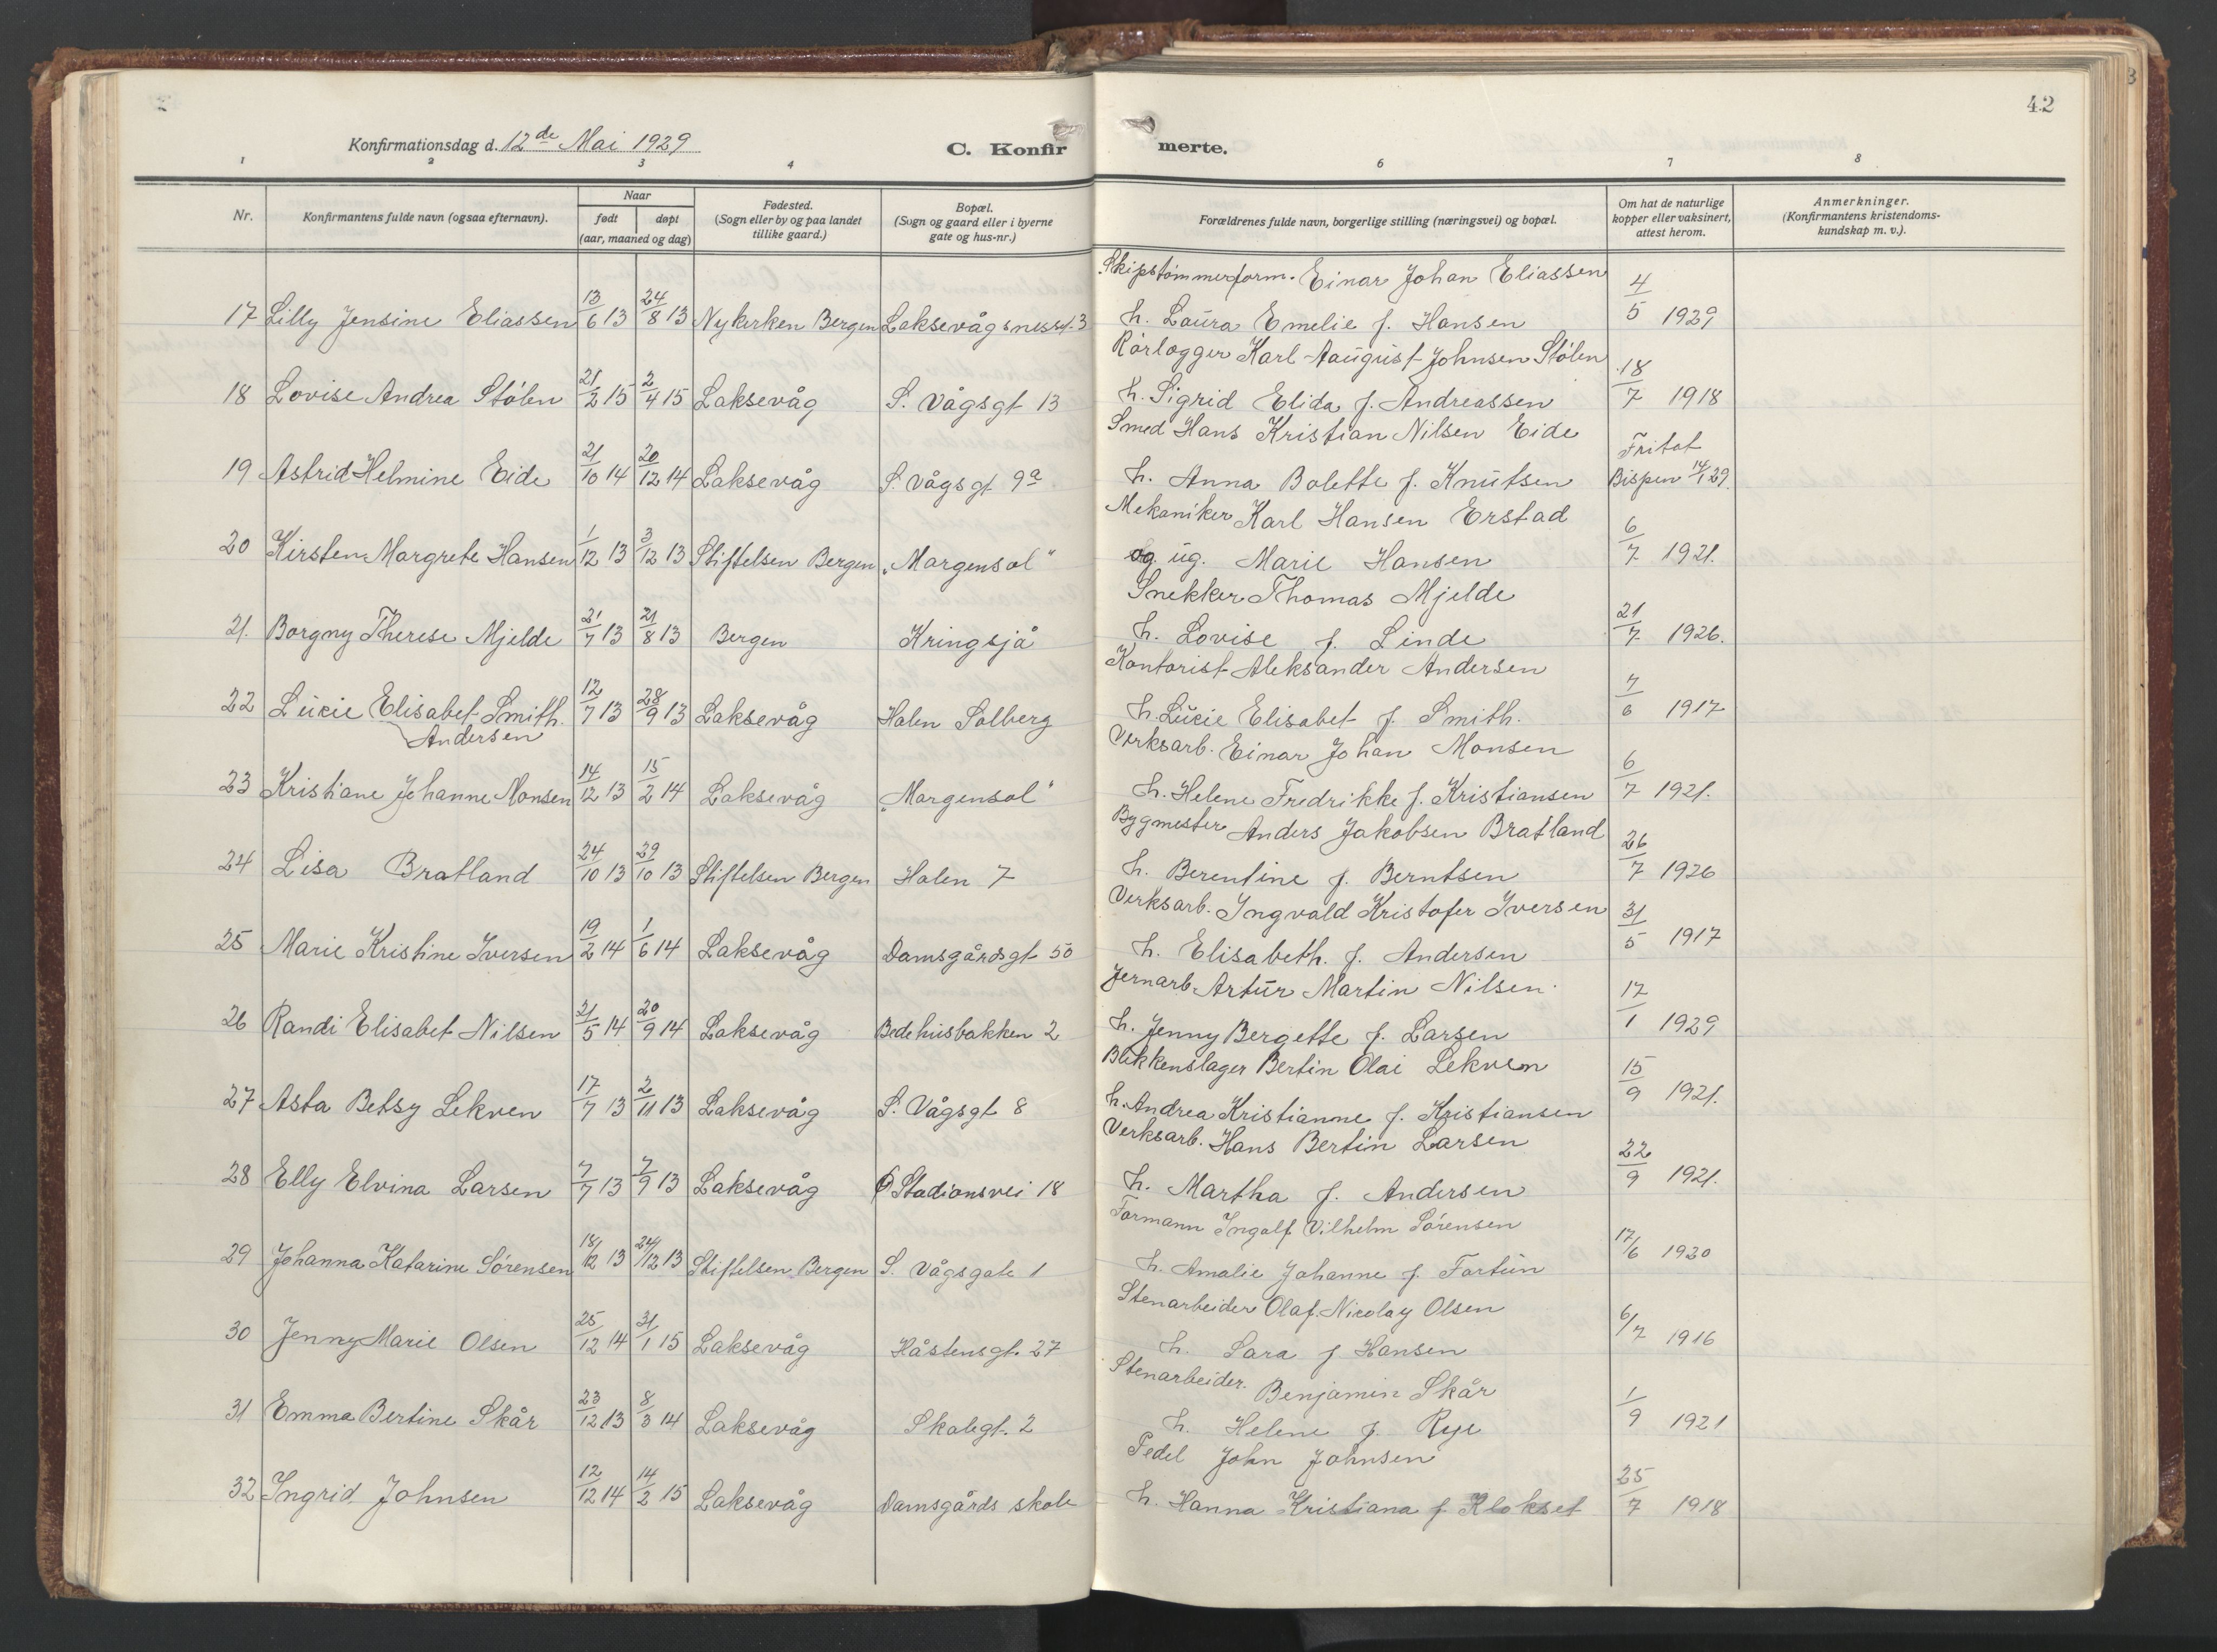 42
Konfirmationsdag d. 12de Mai 1929
C. Konfirmerte.
1 2 3 4 6 7 8
Nr.
Konfirmantens fulde navn (ogsaa efternavn).
Naar
født døpt
(aar, maaned og dag)
Fødested.
(Sogn eller by og paa landet
tillike gaard.)
Bopæl.
(Sogn og gaard eller i byerne
gate og hus-nr.)
Forældrenes fulde navn, borgerlige stilling (næringsvei) og bopæl.
Om hat de naturlige
kopper eller vaksinert,
attest herom.
Anmerkninger.
(Konfirmantens kristendoms-
kundskap m. v.).
Skipstømmerform. Einar Johan Eliassen
17 Lilly Jensine Eliassen 13/6 13 24/8 13 Nykirken Bergen Laksevågsnesset 3 h. Laura Emelie f. Hansen 4/5 1929
Rørlægger Karl Aaugust Johnsen Stølen
18 Lovise Andrea Stølen 21/2 15 2/4 15 Laksevåg S. Vågsgt 13 h. Sigrid Elida f. Andreassen 18/7 1918
Smed Hans Kristian Nilsen Eide
19 Astrid Helmine Eide 21/10 14 20/12 14 Laksevåg S. Vågsgt 9a h. Anna Bolette f. Knutsen Fritat Bispen 14/1 29.
Mekaniker Karl Hansen Erstad
20 Kirsten Margrete Hansen 1/12 13 3/12 13 Stiftelsen Bergen „Morgensol" og ug. Marie Hansen 6/7 1921.
Snekker Thomas Mjelde
21. Borgny Therese Mjelde 21/7 13 21/8 13 Bergen Kringsjå h. Lovise f. Linde 21/7 1926.
Kontorist Aleksander Andersen
22 Lucie Elisabet Smith. 12/7 13 28/9 13 Laksevåg Holen Solberg h. Lucie Elisabet f. Smith. 7/6 1917
Andersen
Verksarb. Einar Johan Monsen
23 Kristiane Johanne Monsen 14/12 13 15/2 14 Laksevåg „Morgensol" h. Helene Fredrikke f. Kristiansen 6/7 1921.
Bygmester Anders Jakobsen Bratland
24 Lisa Bratland 24/10 13 29/10 13 Stiftelsen Bergen Holen 7 h. Berentine f. Berntsen 26/7 1926
Verksarb. Ingvald Kristofer Iversen
25 Marie Kristine Iversen 19/2 14 1/6 14 Laksevåg Damsgårdsgt 50 h. Elisabeth. f. Andersen 31/5 1917
Jernarb. Artur Martin Nilsen
26 Randi Elisabet Nilsen 31/5 14 20/9 14 Laksevåg Bedehusbakken 2 h. Jenny Bergette f. Larsen 17/1 1929
Blikkenslager Bertin Olai Lekven
27 Asta Betsy Lekven 17/7 13 2/11 13 Laksevåg S. Vågsgt 8 h. Andrea Kristianne f. Kristiansen 15/9 1921.
Verksarb. Hans Bertin Larsen
28 Elly Elvina Larsen 7/7 13 7/9 13 Laksevåg Stadionsvei 18 h. Martha f. Andersen 22/9 1921.
Formann Ingolf Vilhelm Sørensen
29 Johanna Katarine Sørensen 18/12 13 24/12 13 Stiftelsen Bergen S. Vågsgate 1 h. Amalie Johanne f. Fortun 17/6 1920
Stenarbeider Olaf Nicolay Olsen
30 Jenny Marie Olsen 25/12 14 31/1 15 Laksevåg Håstensgt. 27 h. Sara f Hansen 6/7 1916
Stenarbeider. Benjamin Skår
31 Emma Bertine Skår 23/12 13 8/3 14 Laksevåg Skolegt. 2 h. Helene f. Rye 1/9 1921
Pedel John Johnsen
32 Ingrid Johnsen 12/12 14 14/2 15 Laksevåg Damsgårds skole h. Hanna Kristiana f. Klokset 25/7 1918